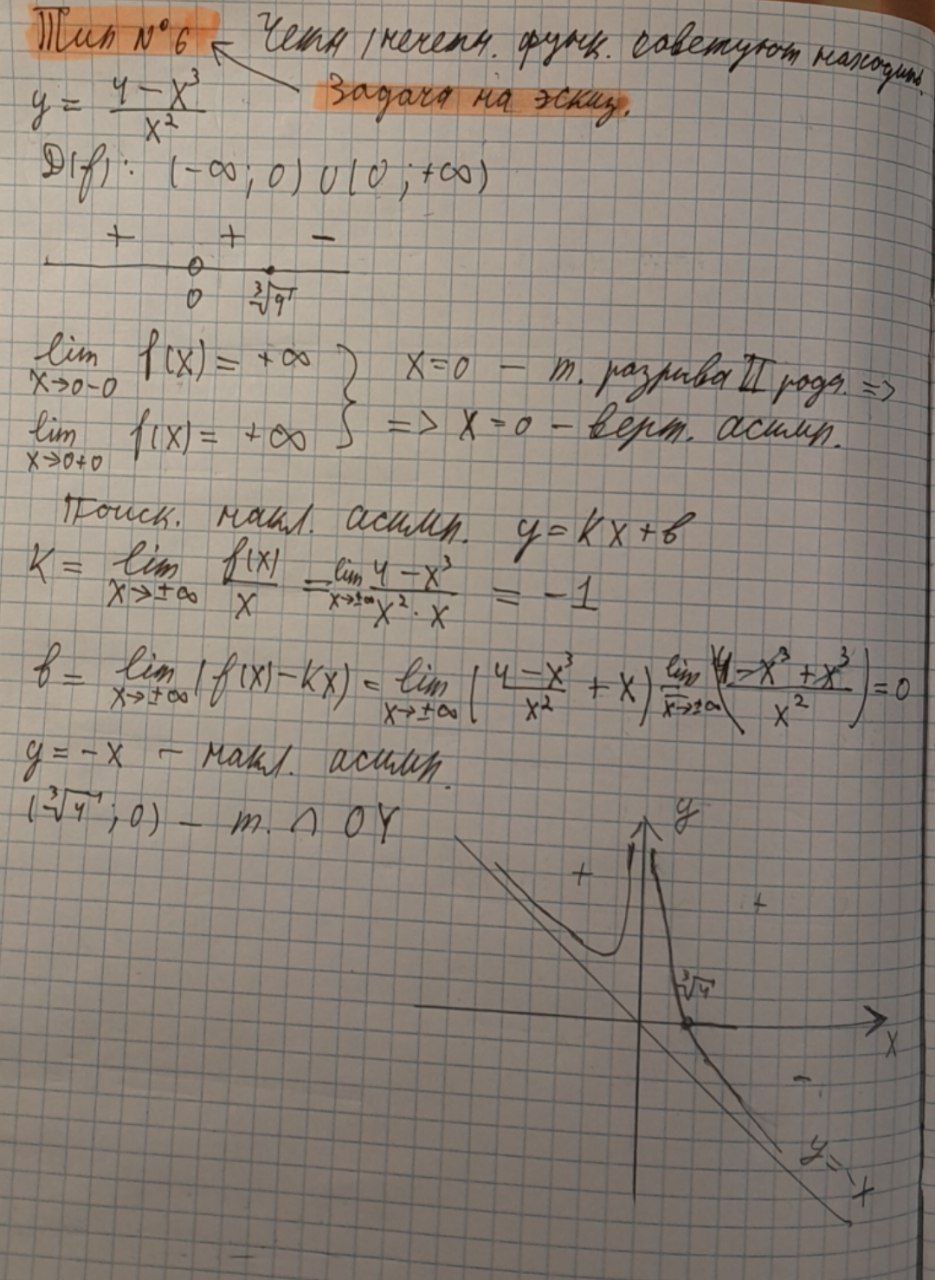 Тип №6 Четн/нечетн. функ. советуют находить.
Задача на эскиз.
y = (4 - x³)/x²
D(f): (-∞; 0) ∪ (0; +∞)
+ + -
0 ∛4
lim x→0-0 f(x) = +∞ } x=0 - т. разрыва II рода. =>
lim x→0+0 f(x) = +∞ } => x=0 - верт. асимп.
Поиск. накл. асимп. y = kx + b
K = lim x→±∞ f(x)/x = lim x→±∞ (4 - x³)/(x² · x) = -1
b = lim x→±∞ (f(x) - kx) = lim x→±∞ ((4 - x³)/x² + x) = lim x→±∞ ((4 - x³ + x³)/x²) = 0
y = -x - накл. асимп.
(∛4; 0) - т. ∩ OY
y
+ +
∛4
x
-
y = -x